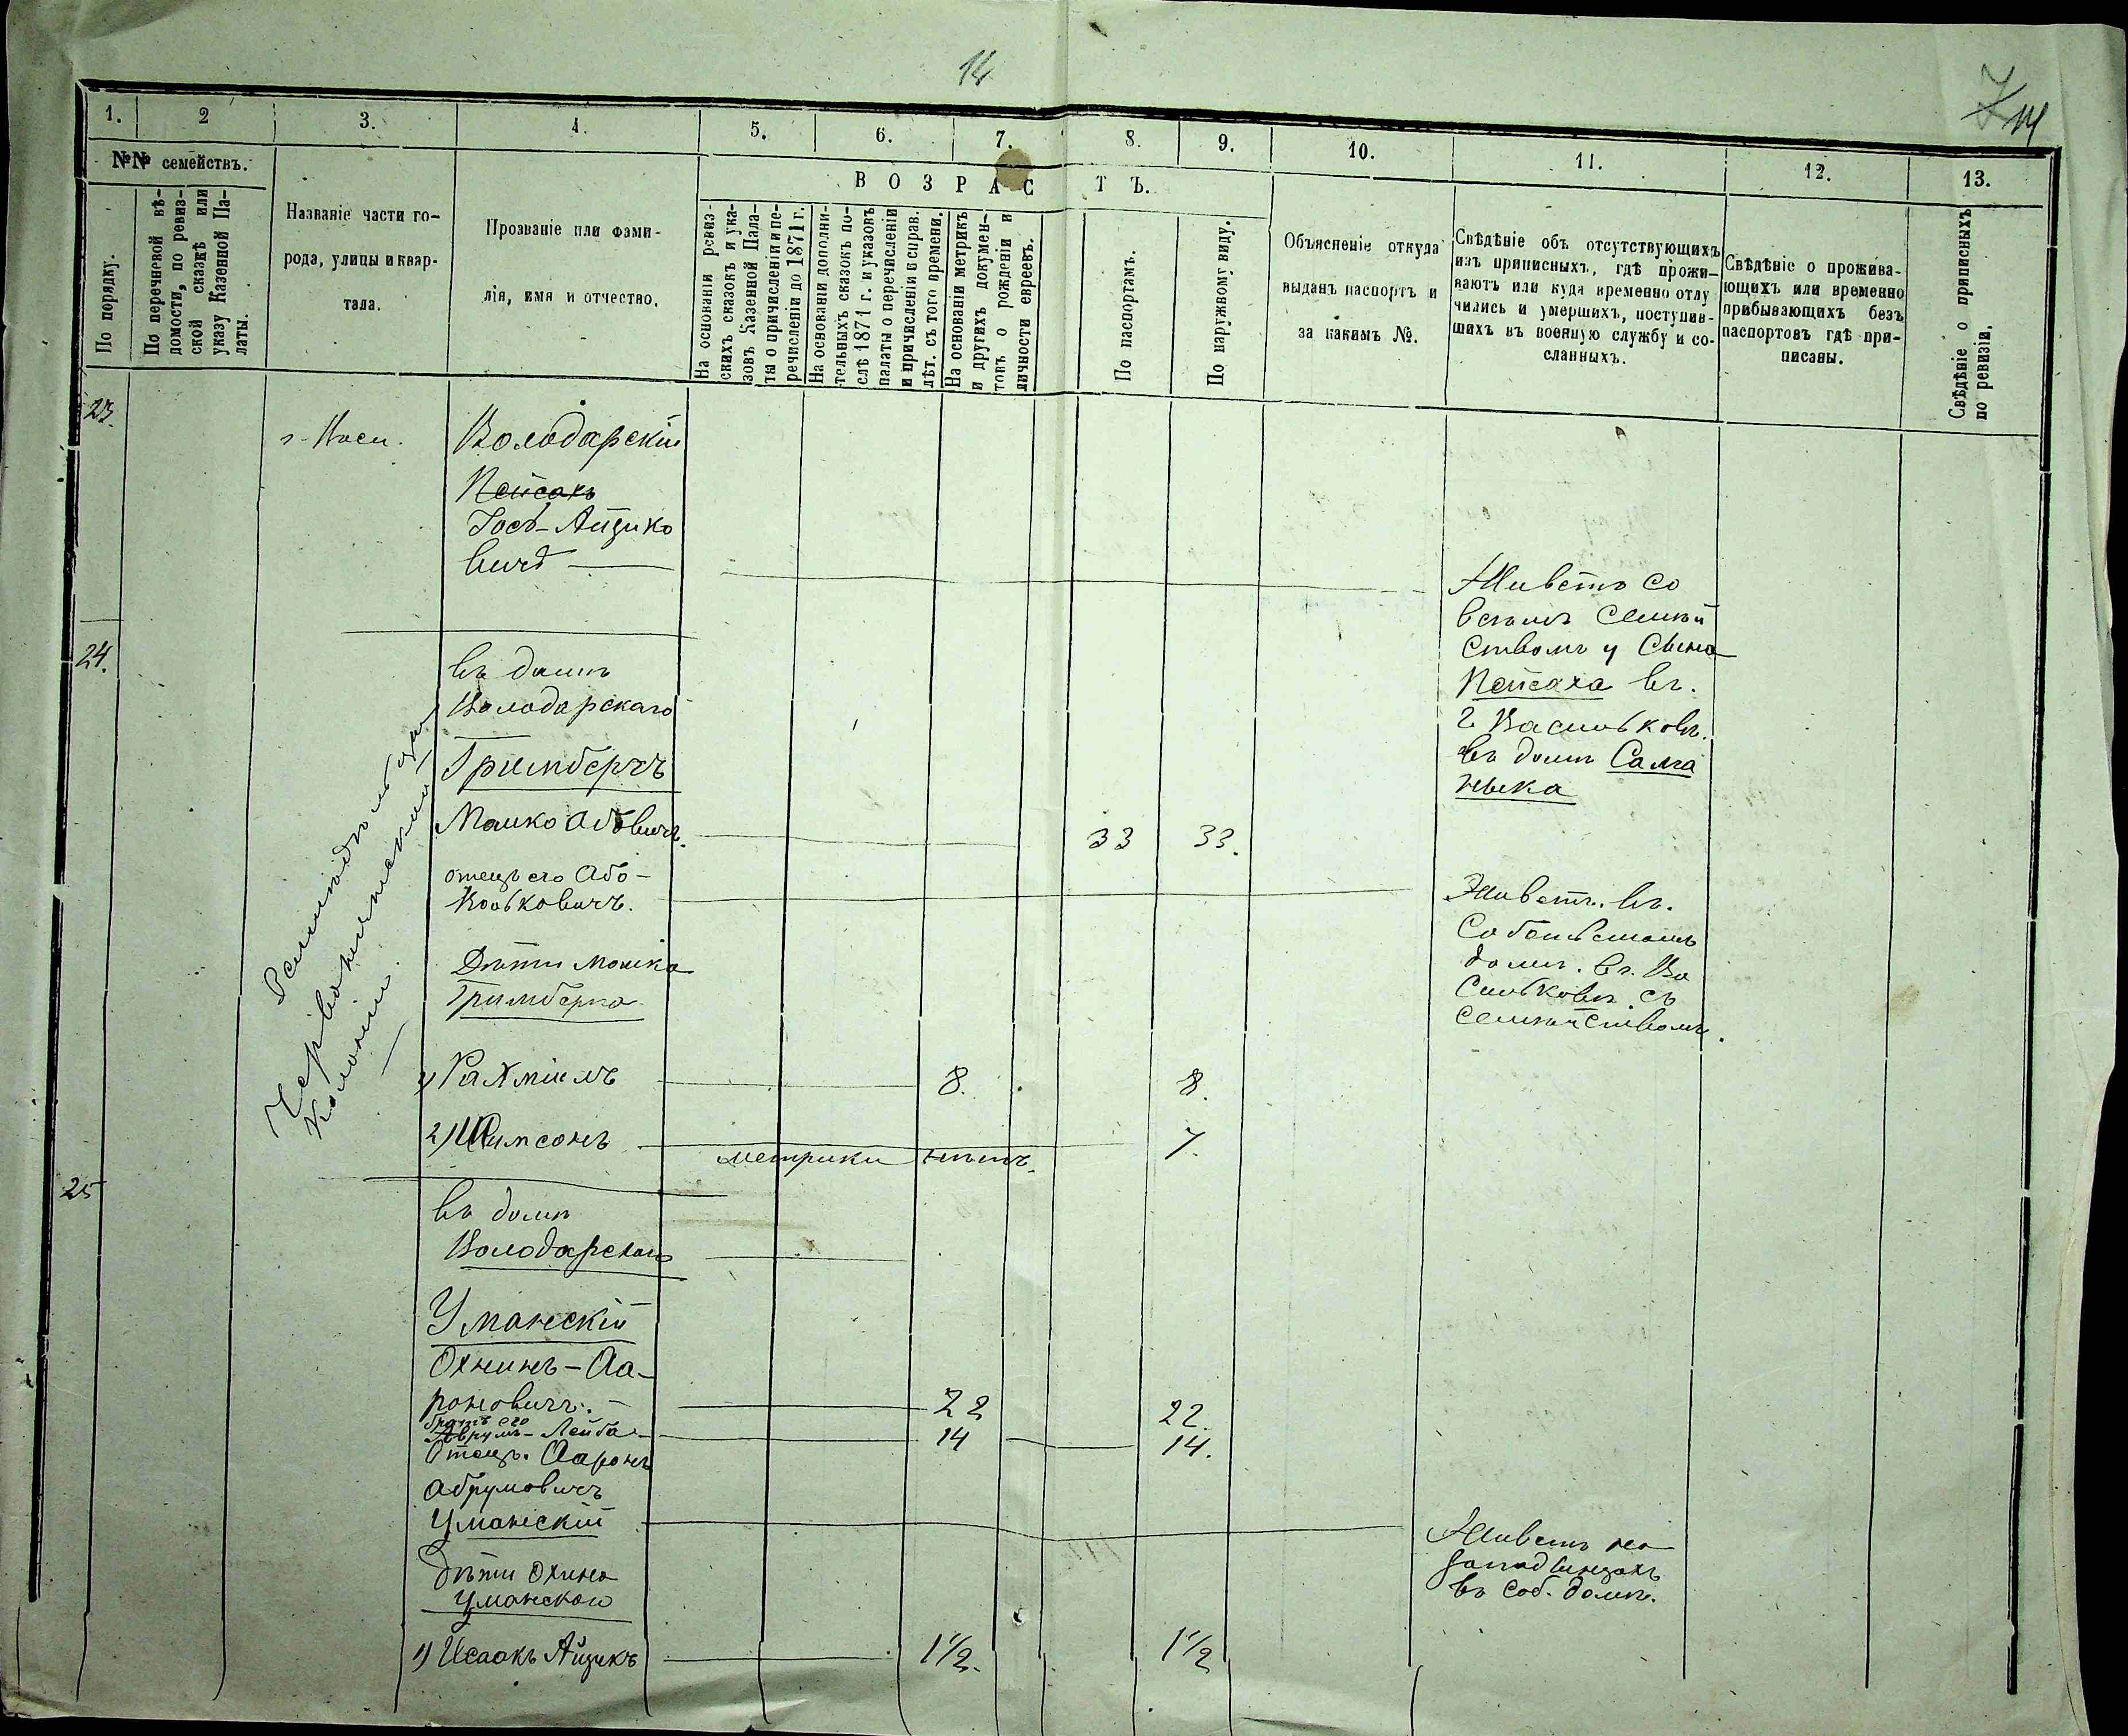 14
14
1.
2
3.
4.
5.
6.
7.
8.
9.
10.
11.
12.
13.
№№ семействъ.
По порядку.
По перечневой вѣ-
домости, по ревиз-
ской сказкѣ или
указу Казенной Па-
латы.
Названіе части го-
рода, улицы и квар-
тала.
Прозваніе или фами-
лія, имя и отчество.
ВОЗРАСТЪ.
На основаніи ревиз-
скихъ сказокъ и ука-
зовъ Казенной Пала-
ты о причисленіи и пе-
речисленіи до 1871 г.
На основаніи дополни-
тельныхъ сказокъ по-
слѣ 1871 г. и указовъ
палаты о перечисленіи
и причисленіи и справ.
лѣт. съ того времени.
На основаніи метрикъ
и другихъ докумен-
товъ о рожденіи и
личности евреевъ.
По паспортамъ.
По наружному виду.
Объясненіе откуда
выданъ паспортъ и
за какимъ №.
Свѣдѣніе объ отсутствующихъ
изъ приписныхъ, гдѣ прожи-
ваютъ или куда временно отлу
чились и умершихъ, поступив-
шихъ въ военную службу и со-
сланныхъ.
Свѣдѣніе о прожива-
ющихъ или временно
прибывающихъ безъ
паспортовъ гдѣ при-
писаны.
Свѣдѣніе о приписныхъ
по ревизіи.
23.
Володарскій
Пейсахъ
Іось-Айцико
вичъ
Живетъ со
всѣмъ семѣй
ствомъ у сына
Пейсаха въ.
г Васильковѣ.
въ домѣ Салга
ныка
24.
въ домѣ
Володарскаго
Гримбергъ
Мошко Абовичъ.
33
33.
отецъ его Або-
Волькович.
Живетъ. въ.
Собственомъ
домѣ. въ. Ва
сильковѣ съ
семѣйствомъ.
Дѣти Мошка
Гримберга
Червонянской
колоніи.
1) Рахміиль
8.
8.
2) Шимсонъ
7.
метрики нѣтъ.
25
въ домѣ
Володарскаго
Уманскій
Охнинъ-Аа-
роновичъ.
22
22.
братъ его
Аврумъ-Лейба
14
14.
Отецъ. Ааронъ
Абрумовичъ
Уманскій
Живетъ на
западинцахъ
въ соб. домѣ.
Дѣти Охина
Уманскаго
1) Исаакъ Айцикъ
1 1/2.
1 1/2